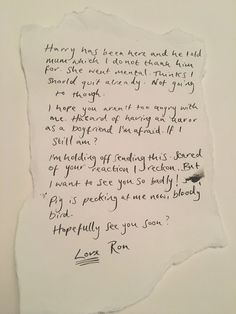 Harry has been here and he told
mum which I do not thank him
for. She went mental. Thinks I
should quit already. Not going
to though.
I hope you aren't too angry with
me. Hazard of having an auror
as a boyfriend I'm afraid. If I
still am?
I'm holding off sending this. Scared
of your reaction I reckon. But
I want to see you so badly!
Pig is pecking at me now, bloody
bird.
Hopefully see you soon?
Love Ron